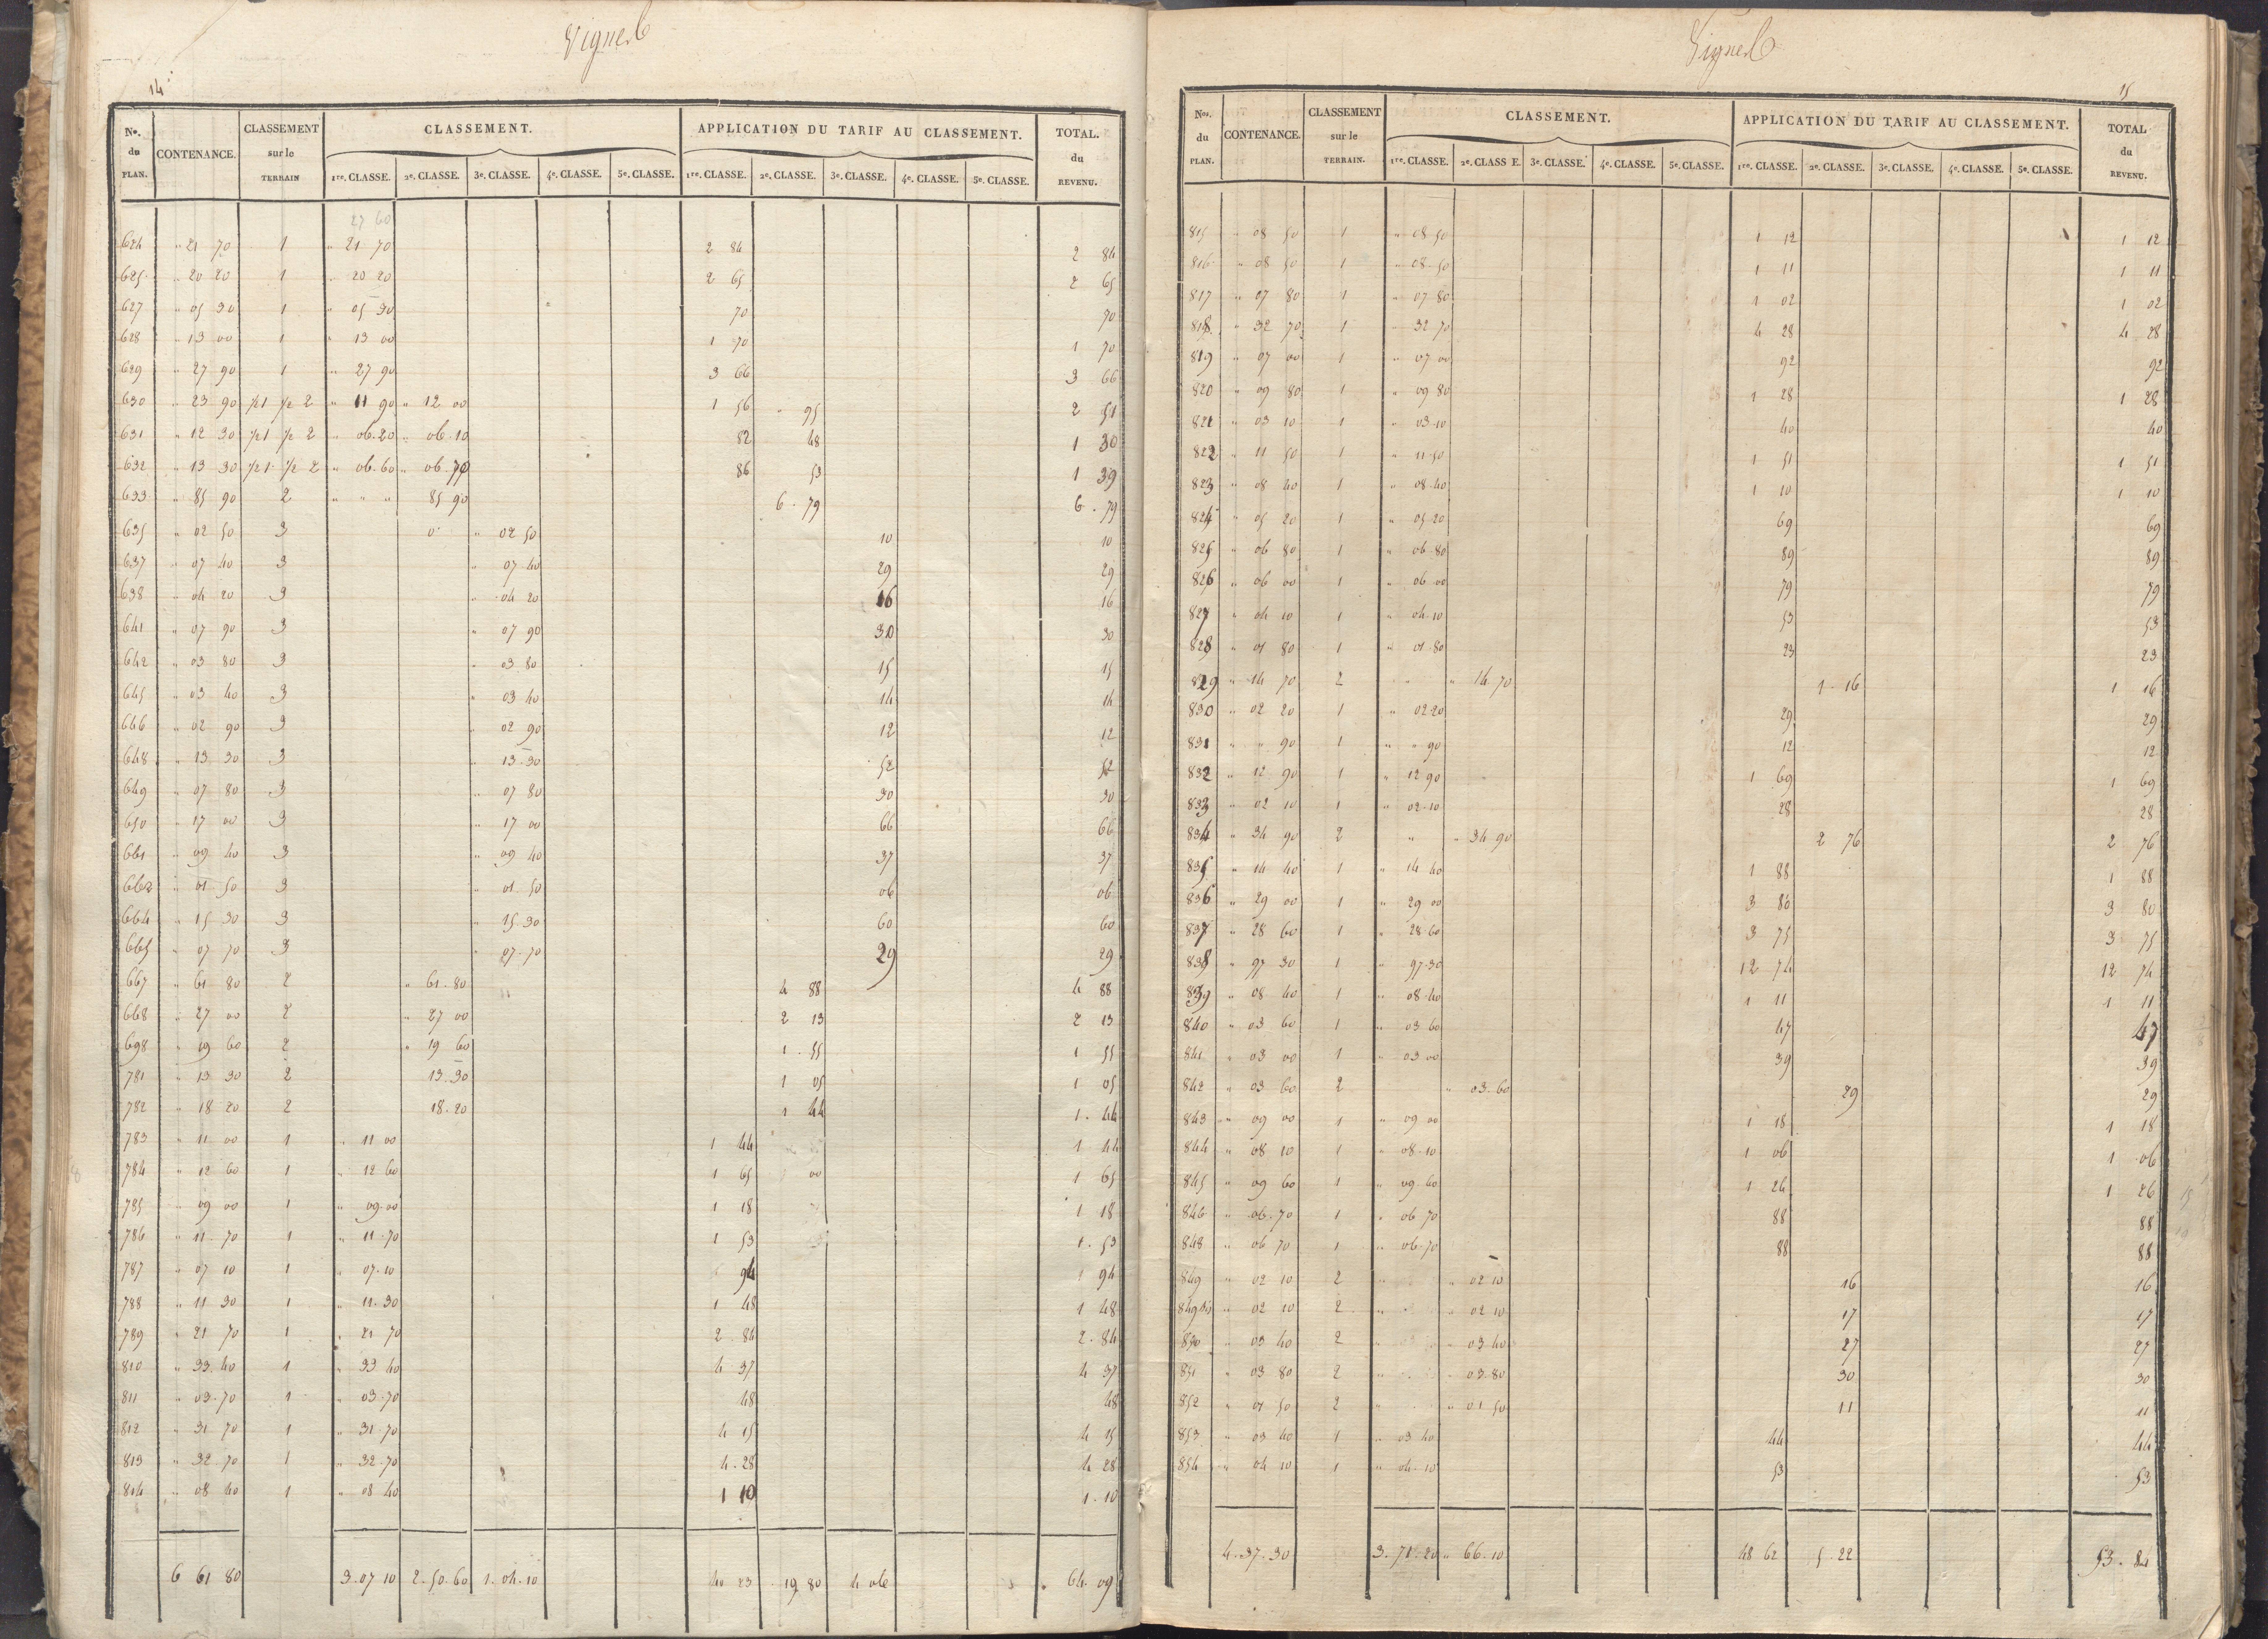 Vignes
14
Nos. du PLAN. CONTENANCE. CLASSEMENT sur le TERRAIN CLASSEMENT. APPLICATION DU TARIF AU CLASSEMENT. TOTAL. du REVENU.
1re. CLASSE. 2e. CLASSE. 3e. CLASSE. 4e. CLASSE. 5e. CLASSE. 1re. CLASSE. 2e. CLASSE. 3e. CLASSE. 4e. CLASSE. 5e. CLASSE.
27 60
624 " 21 70 1 " 21 70 2 84 2 84
625 " 20 20 1 " 20 20 2 65 2 65
627 " 05 30 1 " 05 30 70 70
628 " 13 00 1 " 13 00 1 70 1 70
629 " 27 90 1 " 27 90 3 66 3 66
630 " 23 90 1/2 1 1/2 2 " 11 90 " 12 00 1 56 " 95 2 51
631 " 12 30 1/2 1 1/2 2 " 06.20 " 06.10 82 48 1 30
632 " 13 30 1/2 1 1/2 2 " 06.60 " 06.70 86 53 1 39
633 " 85 90 2 " " " 85 90 6.79 6.79
635 " 02 50 3 " 02 50 10 10
637 " 07 40 3 " 07 40 29 29
638 " 04 20 3 " 04 20 16 16
641 " 07 90 3 " 07 90 30 30
642 " 03 80 3 " 03 80 15 15
645 " 03 40 3 " 03 40 14 14
646 " 02 90 3 " 02 90 12 12
648 " 13 30 3 " 13.30 52 52
649 " 07 80 3 " 07 80 30 30
650 " 17 00 3 " 17 00 66 66
661 " 09 40 3 " 09 40 37 37
662 " 01 50 3 " 01 50 06 06
664 " 15 30 3 " 15.30 60 60
665 " 07 70 3 " 07.70 29 29
667 " 61 80 2 " 61.80 4 88 4 88
668 " 27 00 2 " 27 00 2 13 2 13
698 " 19 60 2 " 19 60 1.55 1 55
781 " 13 30 2 13.30 1 05 1 05
782 " 18 20 2 18.20 1 44 1.44
783 " 11 00 1 " 11 00 1 44 1 44
784 " 12 60 1 " 12 60 1 65 1 65
785 " 09 00 1 " 09.00 1 18 1 18
786 " 11.70 1 " 11.70 1 53 1.53
787 " 07 10 1 " 07.10 94 94
788 " 11 30 1 " 11.30 1 48 1 48
789 " 21 70 1 " 21 70 2.84 2.84
810 " 33.40 1 " 33 40 4 37 4 37
811 " 03.70 1 " 03.70 48 48
812 " 31 70 1 " 31.70 4 15 4 15
813 " 32.70 1 " 32.70 4.28 4 28
814 " 08 40 1 " 08 40 1 10 1.10
6 61 80 3.07 10 2.50.60 1.04.10 40 23 19 80 4 06 64.09
Vignes
15
Nos. du PLAN. CONTENANCE. CLASSEMENT sur le TERRAIN. CLASSEMENT. APPLICATION DU TARIF AU CLASSEMENT. TOTAL du REVENU.
1re. CLASSE. 2e. CLASSE. 3e. CLASSE. 4e. CLASSE. 5e. CLASSE. 1re. CLASSE. 2e. CLASSE. 3e. CLASSE. 4e. CLASSE. 5e. CLASSE.
815 " 08 50 1 " 08 50 1 12 1 12
816 " 08 50 1 " 08.50 1 11 1 11
817 " 07 80 1 " 07 80 1 02 1 02
818 " 32 70 1 " 32 70 4 28 4 28
819 " 07 00 1 " 07 00 92 92
820 " 09 80 1 " 09 80 1 28 1 28
821 " 03 10 1 " 03.10 40 40
822 " 11 50 1 " 11.50 1 51 1 51
823 " 08 40 1 " 08.40 1 10 1 10
824 " 05 20 1 " 05.20 69 69
825 " 06 80 1 " 06.80 89 89
826 " 06 00 1 " 06 00 79 79
827 " 04 10 1 " 04.10 53 53
828 " 01 80 1 " 01.80 23 23
829 " 14 70 2 " " 14.70 1.16 1 16
830 " 02 20 1 " 02.20 29 29
831 " " 90 1 " " 90 12 12
832 " 12 90 1 " 12 90 1 69 1 69
833 " 02 10 1 " 02.10 28 28
834 " 34 90 2 " " 34.90 2 76 2 76
835 " 14 40 1 " 14 40 1 88 1 88
836 " 29 00 1 " 29 00 3 80 3 80
837 " 28 60 1 " 28.60 3 75 3 75
838 " 97 30 1 " 97.30 12 74 12 74
839 " 08 40 1 " 08.40 1 11 1 11
840 " 03 60 1 " 03 60 47 47
841 " 03 00 1 " 03 00 39 39
842 " 03 60 2 " 03.60 29 29
843 " 09 00 1 " 09 00 1 18 1 18
844 " 08 10 1 " 08.10 1 06 1 06
845 " 09 60 1 " 09.60 1 26 1 26
846 " 06.70 1 " 06 70 88 88
848 " 06 70 1 " 06.70 88 88
849 " 02 10 2 " " 02 10 16 16
849 bis " 02 10 2 " " 02.10 17 17
850 " 03 40 2 " " 03.40 27 27
851 " 03 80 2 " " 03.80 30 30
852 " 01 50 2 " " 01 50 11 11
853 " 03 40 1 " 03 40 44 44
854 " 04 10 1 " 04.10 53 53
4.37.30 3.71.20 " 66.10 48 62 5.22 53.84